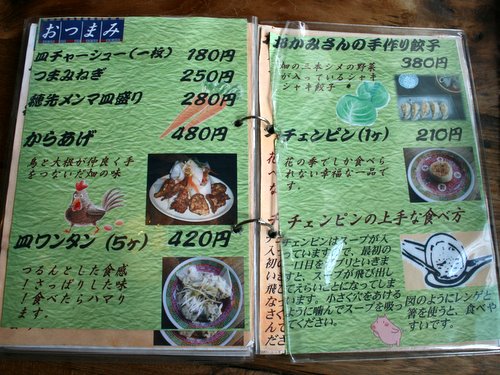 おつまみ
皿チャーシュー(一枚) 180円
つまみねぎ 250円
穂先メンマ皿盛り 280円
からあげ 480円
鳥と大根が仲良く手
をつないだ畑の味
皿ワンタン(5ヶ) 420円
つるんとした食感
!さっぱりした味
!食べたらハマり
ます。
おかみさんの手作り餃子
380円
畑の三本シメの野菜
が入っているシャキ
シャキ餃子
チェンピン(1ヶ) 210円
花の季でしか食べら
れない幸福な一品で
す。
チェンピンの上手な食べ方
チェンピンはスープが入
っていますので、最初の
一口目をガブリといきま
すと、スープが飛び出し
てえらいことになってしま
います。小さく穴をあける
ように噛んでスープを吸っ
てください。
図のようにレンゲと
箸を使うと、食べや
すいです。